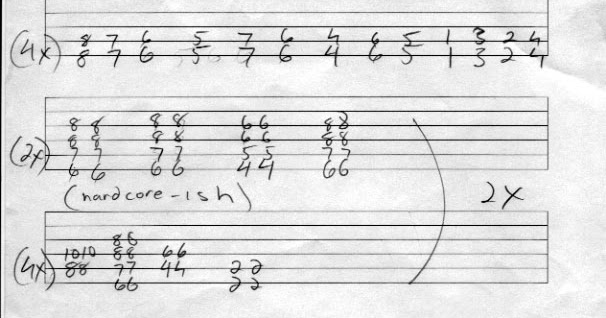 8 7 6 5 7 6 4 6 5 1 3 2 4
(4x) 8 7 6 5 7 6 4 6 5 1 3 2 4
8 8 8 8 6 6 8 8
8 8 8 8 6 6 8 8
(2x) 7 7 7 7 5 5 7 7
6 6 6 6 4 4 6 6
(hardcore-ish) 2x
8 8
10 10 8 8 6 6
(4x) 8 8 7 7 4 4 2 2
6 6 2 2